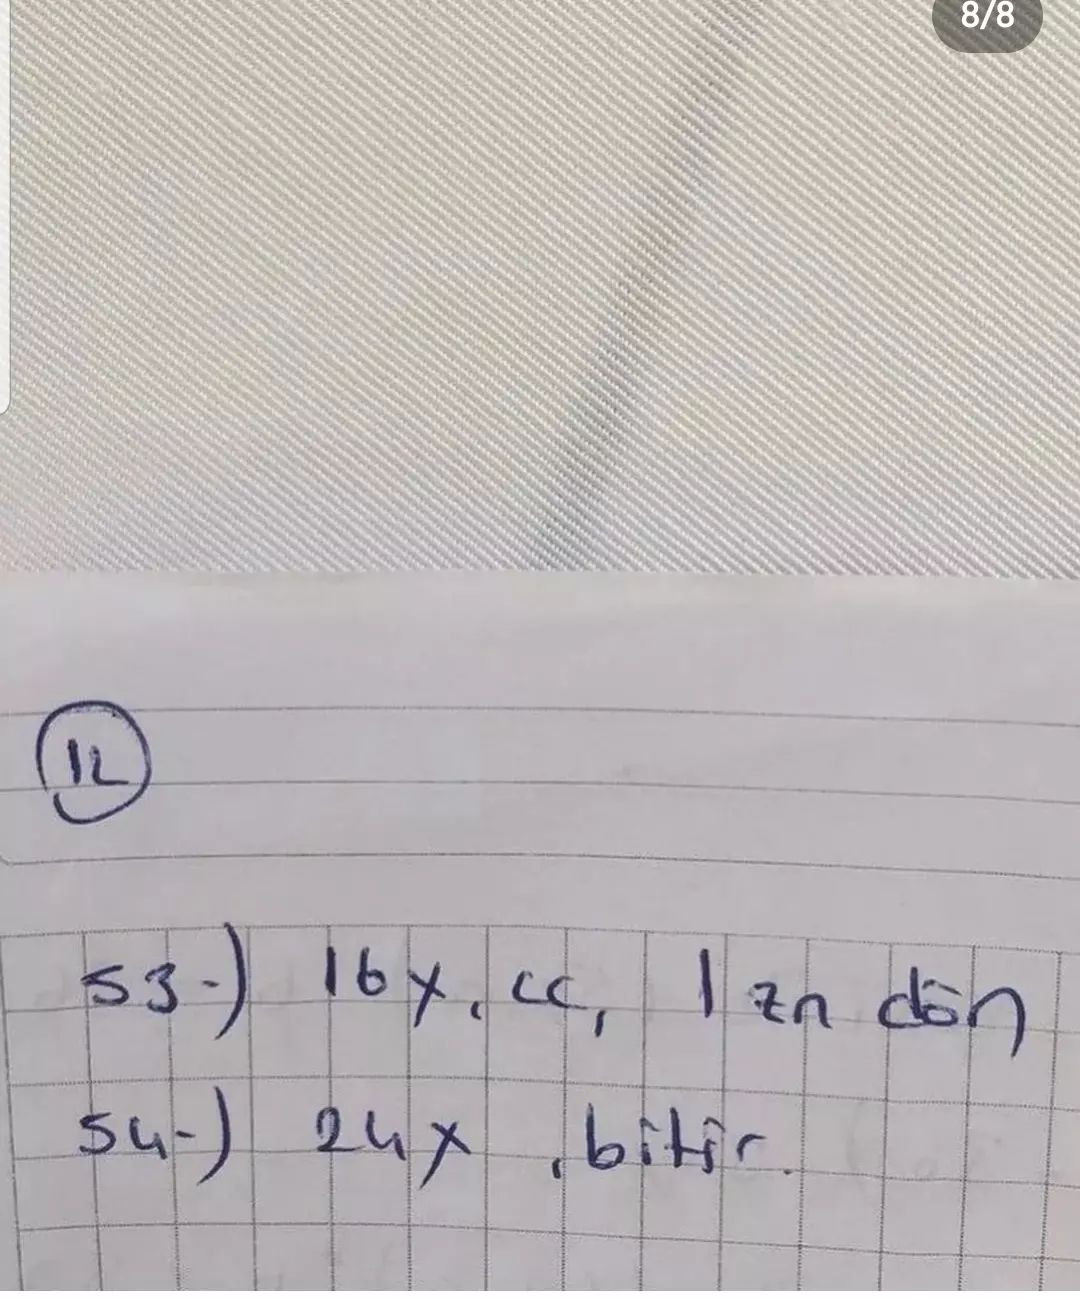 8/8
12
53-) 16x, cc, 1 zn dön
54-) 24x , bitir.